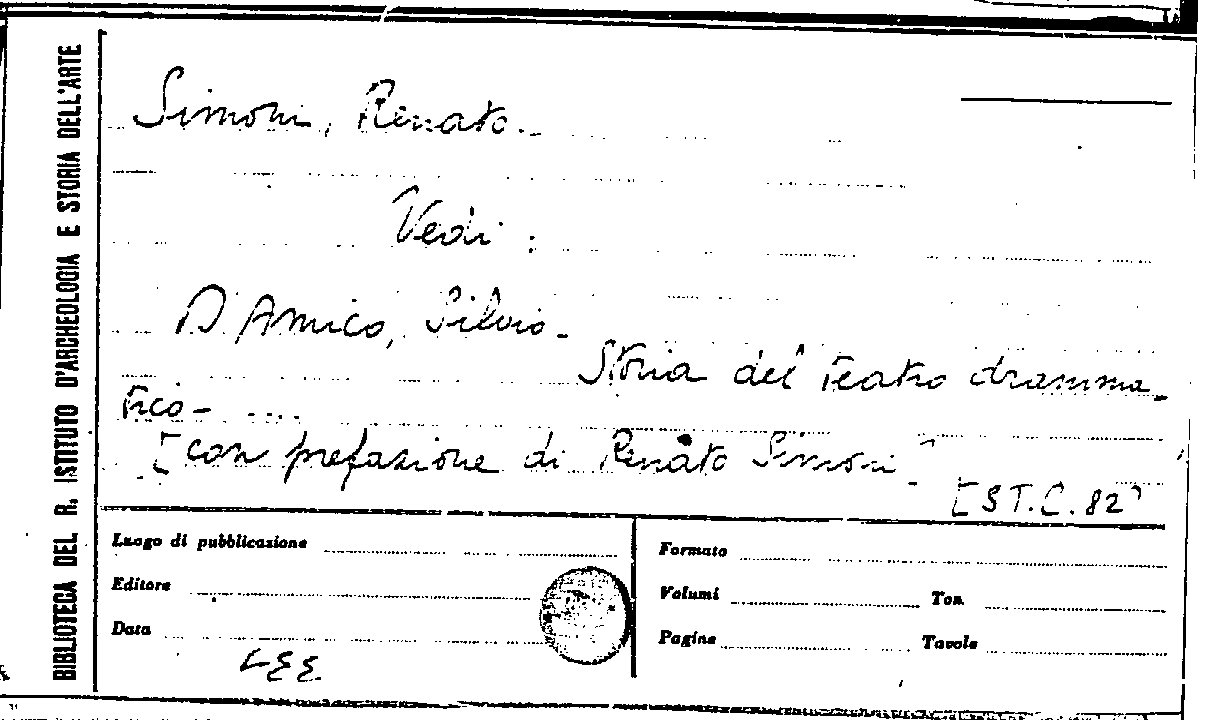 BIBLIOTECA DEL R. ISTITUTO D'ARCHEOLOGIA E STORIA DELL'ARTE
Simoni, Renato.
Vedi :
D'Amico, Silvio.
Storia del Teatro dramma-
tico - ....
[con prefazione di Renato Simoni]
[ST.C.82]
Luogo di pubblicazione
Editore
Data
Formato
Volumi Tom.
Pagine Tavole